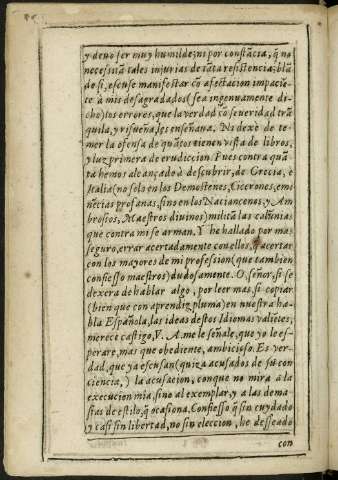 y devo ser muy humilde; ni por constãcia, q̃ no
necessitã tales injurias de tãta resistencia: blã
do si, escuse manifestar cõ afectacion impaciẽ
te à mis desagradados (sea ingenuamente di-
cho) los errores, que la verdad cõ severidad trã
quila, y risueña, les enseñava. Ni dexè de te-
mer la ofensa de quãtos tienen vista de libros,
y luz primera de erudiccion. Pues contra quã-
ta hemos alcançado à descubrir, de Grecia, è
Italia (no solo en los Demostenes, Cicerones, emi
nẽcias profanas, sino en los Naciancenos, y Am
brosios, Maestros divinos) militã las calũnias
que contra mi se arman. Y he hallado por mas
seguro, errar acertadamente con ellos, q̃ acertar
con los mayores de mi profesion (que tambien
confiesso maestros) dudosamente. O, señor, si se
dexera de hablar algo, por leer mas, si copiar
(bien que con aprendiz pluma) en nuestra ha-
bla Española, las ideas destos Idiomas valiẽtes,
merece castigo, V. A. me le señale, que yo le es-
perarè, mas que obediente, ambicioso. Es ver-
dad, que ya escusan (quiza acusados de su con
ciencia,) la acusacion, conque no mira à la
execucion mia, sino al exemplar, y a las dema-
sias de estilo, q̃ ocasiona. Confiesso q̃ sin cuydado
y casi sin libertad, no sin eleccion, he desseado
con